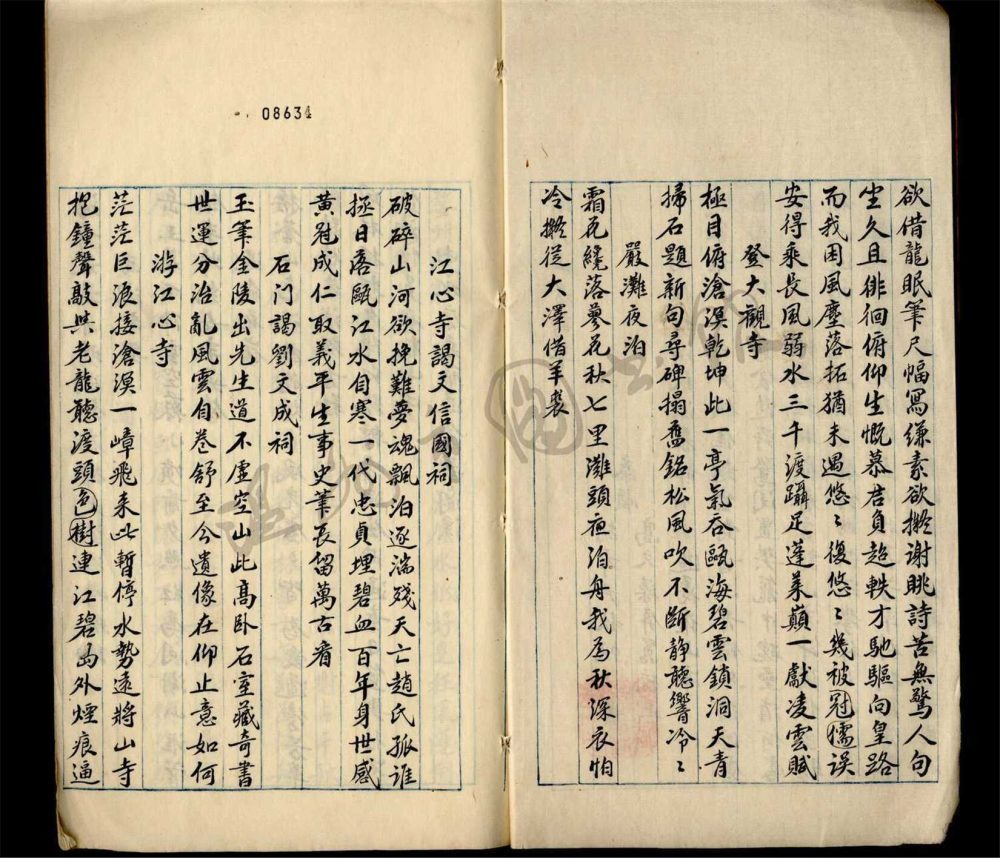 欲借龍眠筆尺幅寫縑素欲擬謝眺詩苦無驚人句
生久且徘徊俯仰生慨慕君負超軼才馳驅向皇路
而我困風塵落拓猶未遇悠〻復悠〻幾被冠儒误
安得乘長風弱水三千渡躡足蓬莱巔一獻凌雲賦
登大觀寺
極目俯滄溟乾坤此一亭氣吞甌海碧雲鎖洞天青
掃石題新句尋碑搨舊銘松風吹不断静聽響冷〻
嚴灘夜泊
霜花繞落蓼花秋七里灘頭夜泊舟我為秋深衣怕
冷擬從大澤借羊裘
08634
江心寺謁文信國祠
破碎山河欲挽難夢魂飄泊逐湍殘天亡趙氏孤誰
拯日落甌江水自寒一代忠貞埋碧血百年身世感
黄冠成仁取義平生事史筆長留萬古看
石门謁劉文成祠
玉筆金陵出先生道不虛空山此高卧石室藏奇書
世運分治亂風雲自卷舒至今遺像在仰止意如何
游江心寺
茫茫巨浪接滄溟一嶂飛来此暫停水勢遠將山寺
抱鐘聲敲與老龍聽渡頭色樹連江碧島外煙痕逼